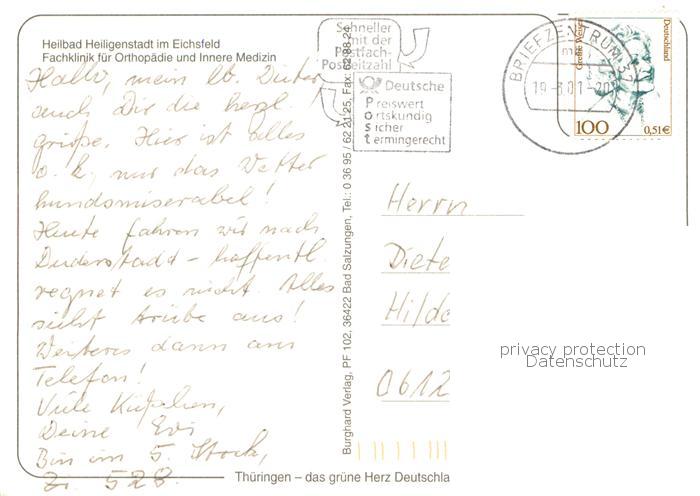 Heilbad Heiligenstadt im Eichsfeld
Fachklinik für Orthopädie und Innere Medizin
Hallo, mein lb. Dieter
auch Dir die herzl.
grüße. Hier ist alles
o.k. nur das Wetter
hundsmiserabel!
Heute fahren wir nach
Duderstadt - hoffentl.
regnet es nicht. Alles
sieht trübe aus!
Weiteres dann am
Telefon!
Viele Küßchen,
Deine Evi
Bin im 5. Stock,
Zi. 528.
Schneller
mit der
Postfach-
Postleitzahl
Deutsche
Preiswert
Ortskundig
Sicher
Termingerecht
BRIEFZENTRUM 37
Grethe Weiser
Deutschland
100
0,51€
Burghard Verlag, PF 102, 36422 Bad Salzungen, Tel.: 0 36 95 / 62 21 25, Fax: 62 88 24
Herrn
Diete
Hilde
0612
privacy protection
Datenschutz
Thüringen – das grüne Herz Deutschla